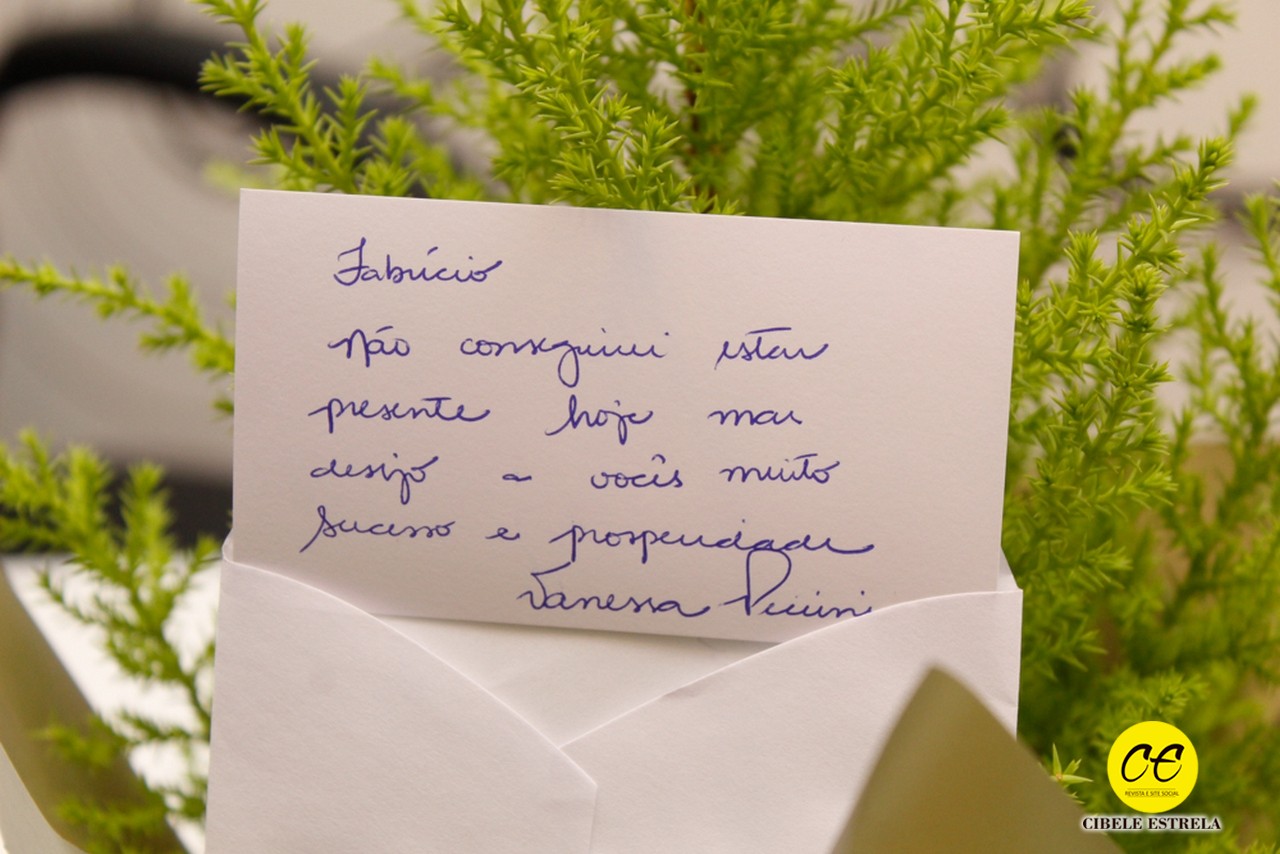 Fabrício
não consegui estar
presente hoje mas
desejo a vocês muito
sucesso e prosperidade
Vanessa Piccini
CE
REVISTA E SITE SOCIAL
CIBELE ESTRELA